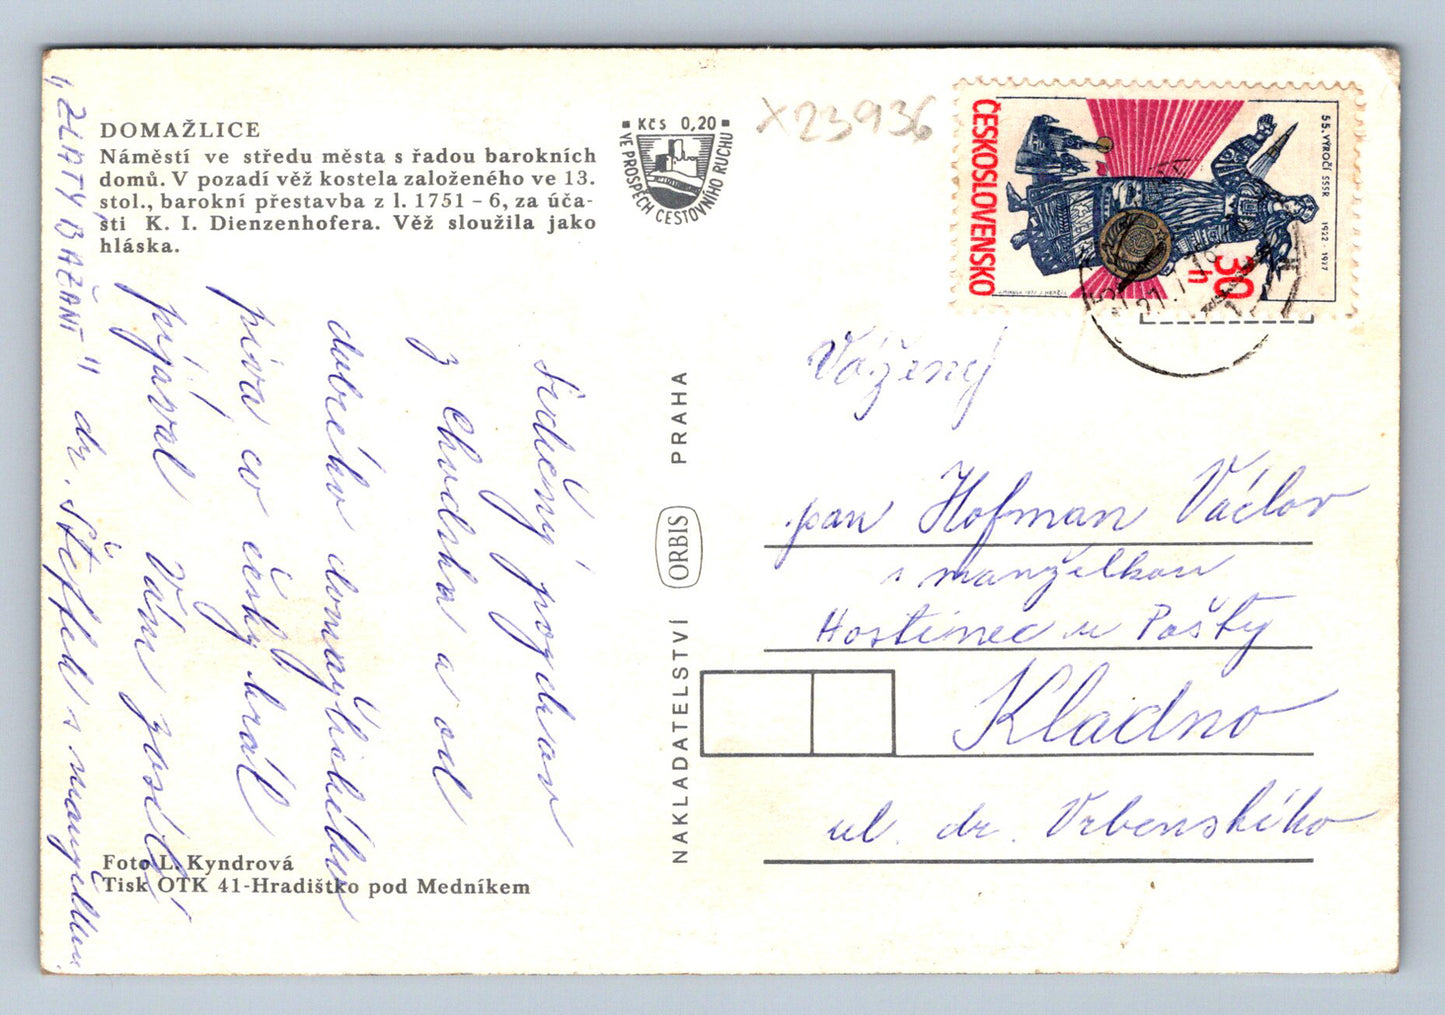 DOMAŽLICE
Náměstí ve středu města s řadou barokních
domů. V pozadí věž kostela založeného ve 13.
stol., barokní přestavba z l. 1751 – 6, za úča-
sti K. I. Dienzenhofera. Věž sloužila jako
hláska.
Kčs 0,20
VE PROSPĚCH CESTOVNÍHO RUCHU
X23936
ČESKOSLOVENSKO
55. VÝROČÍ SSSR 1922 - 1977
30 h
Srdečný pozdrav
z Chodska a od
dobrého domažlického
piva co český král
pijával Vám posílá
"ZLATÝ BAŽANT" dr. Steffel s manželkou.
Foto L. Kyndrová
Tisk OTK 41-Hradištko pod Medníkem
NAKLADATELSTVÍ ORBIS PRAHA
Vážený
pan Hofman Václav
s manželkou
Hostinec u Pošty
Kladno
ul. dr. Vrbenského